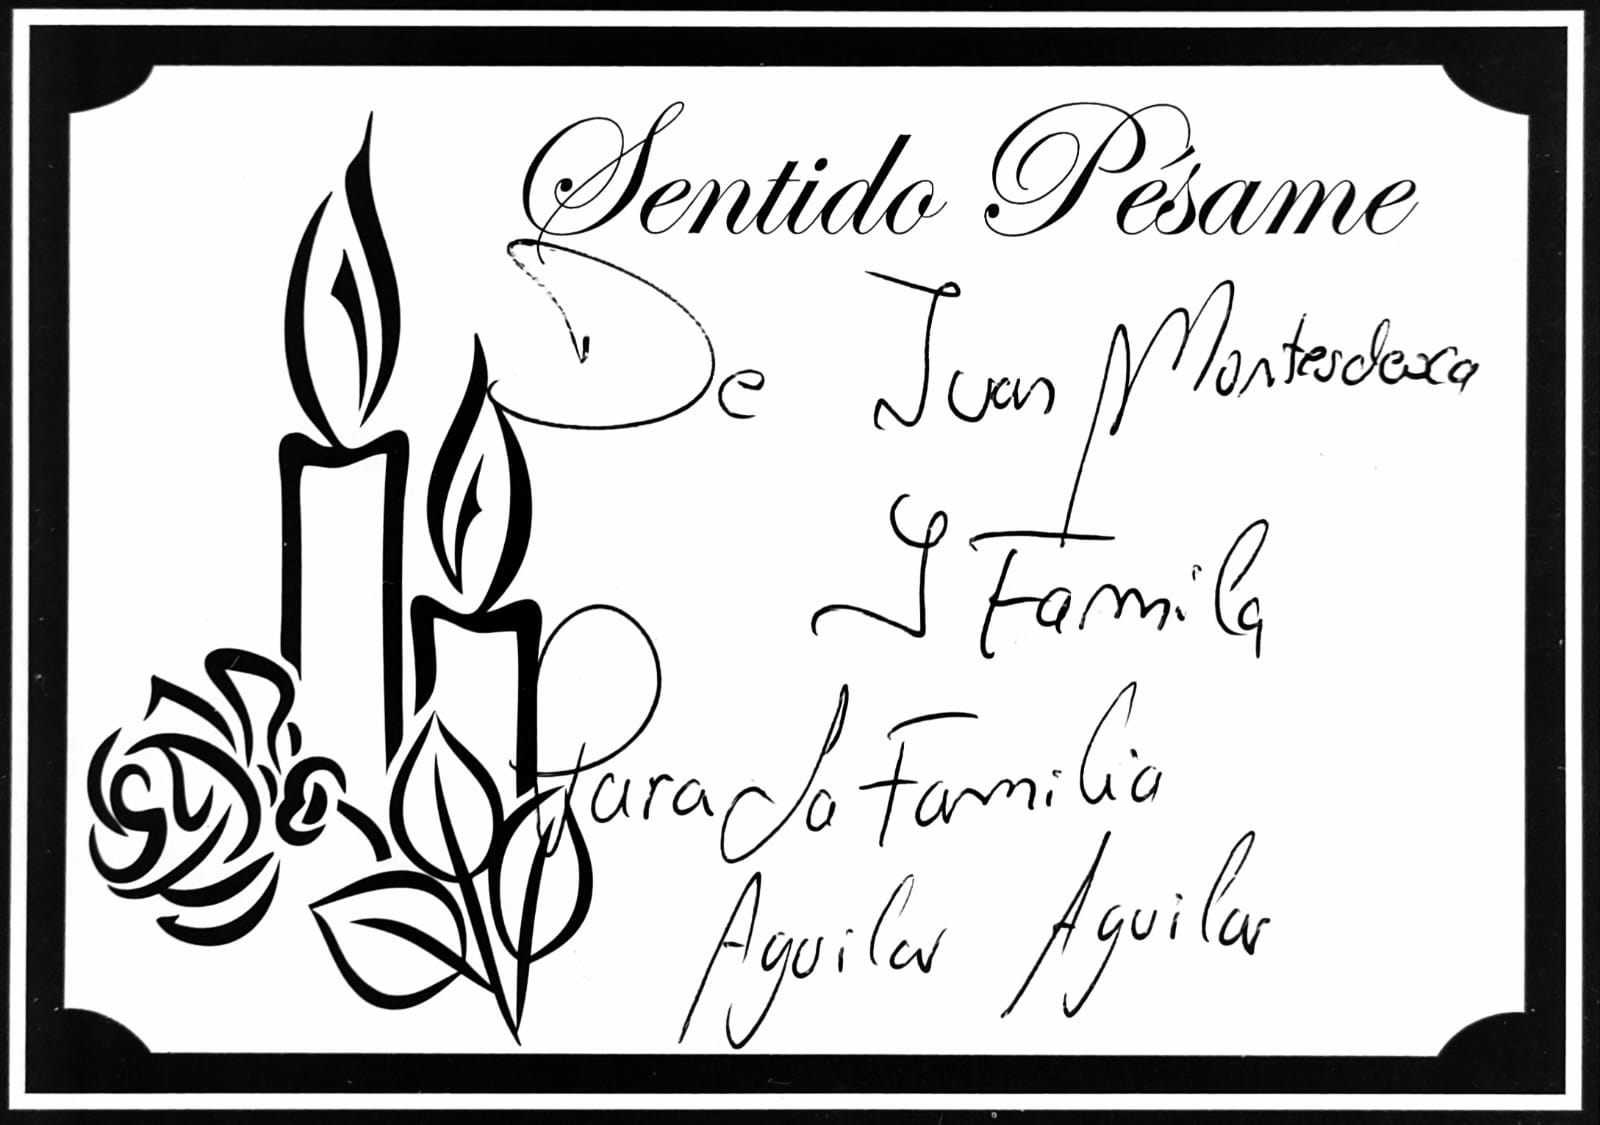 Sentido Pésame
De Juan Montesdeoca
Y Famila
Para la Familia
Aguilar Aguilar